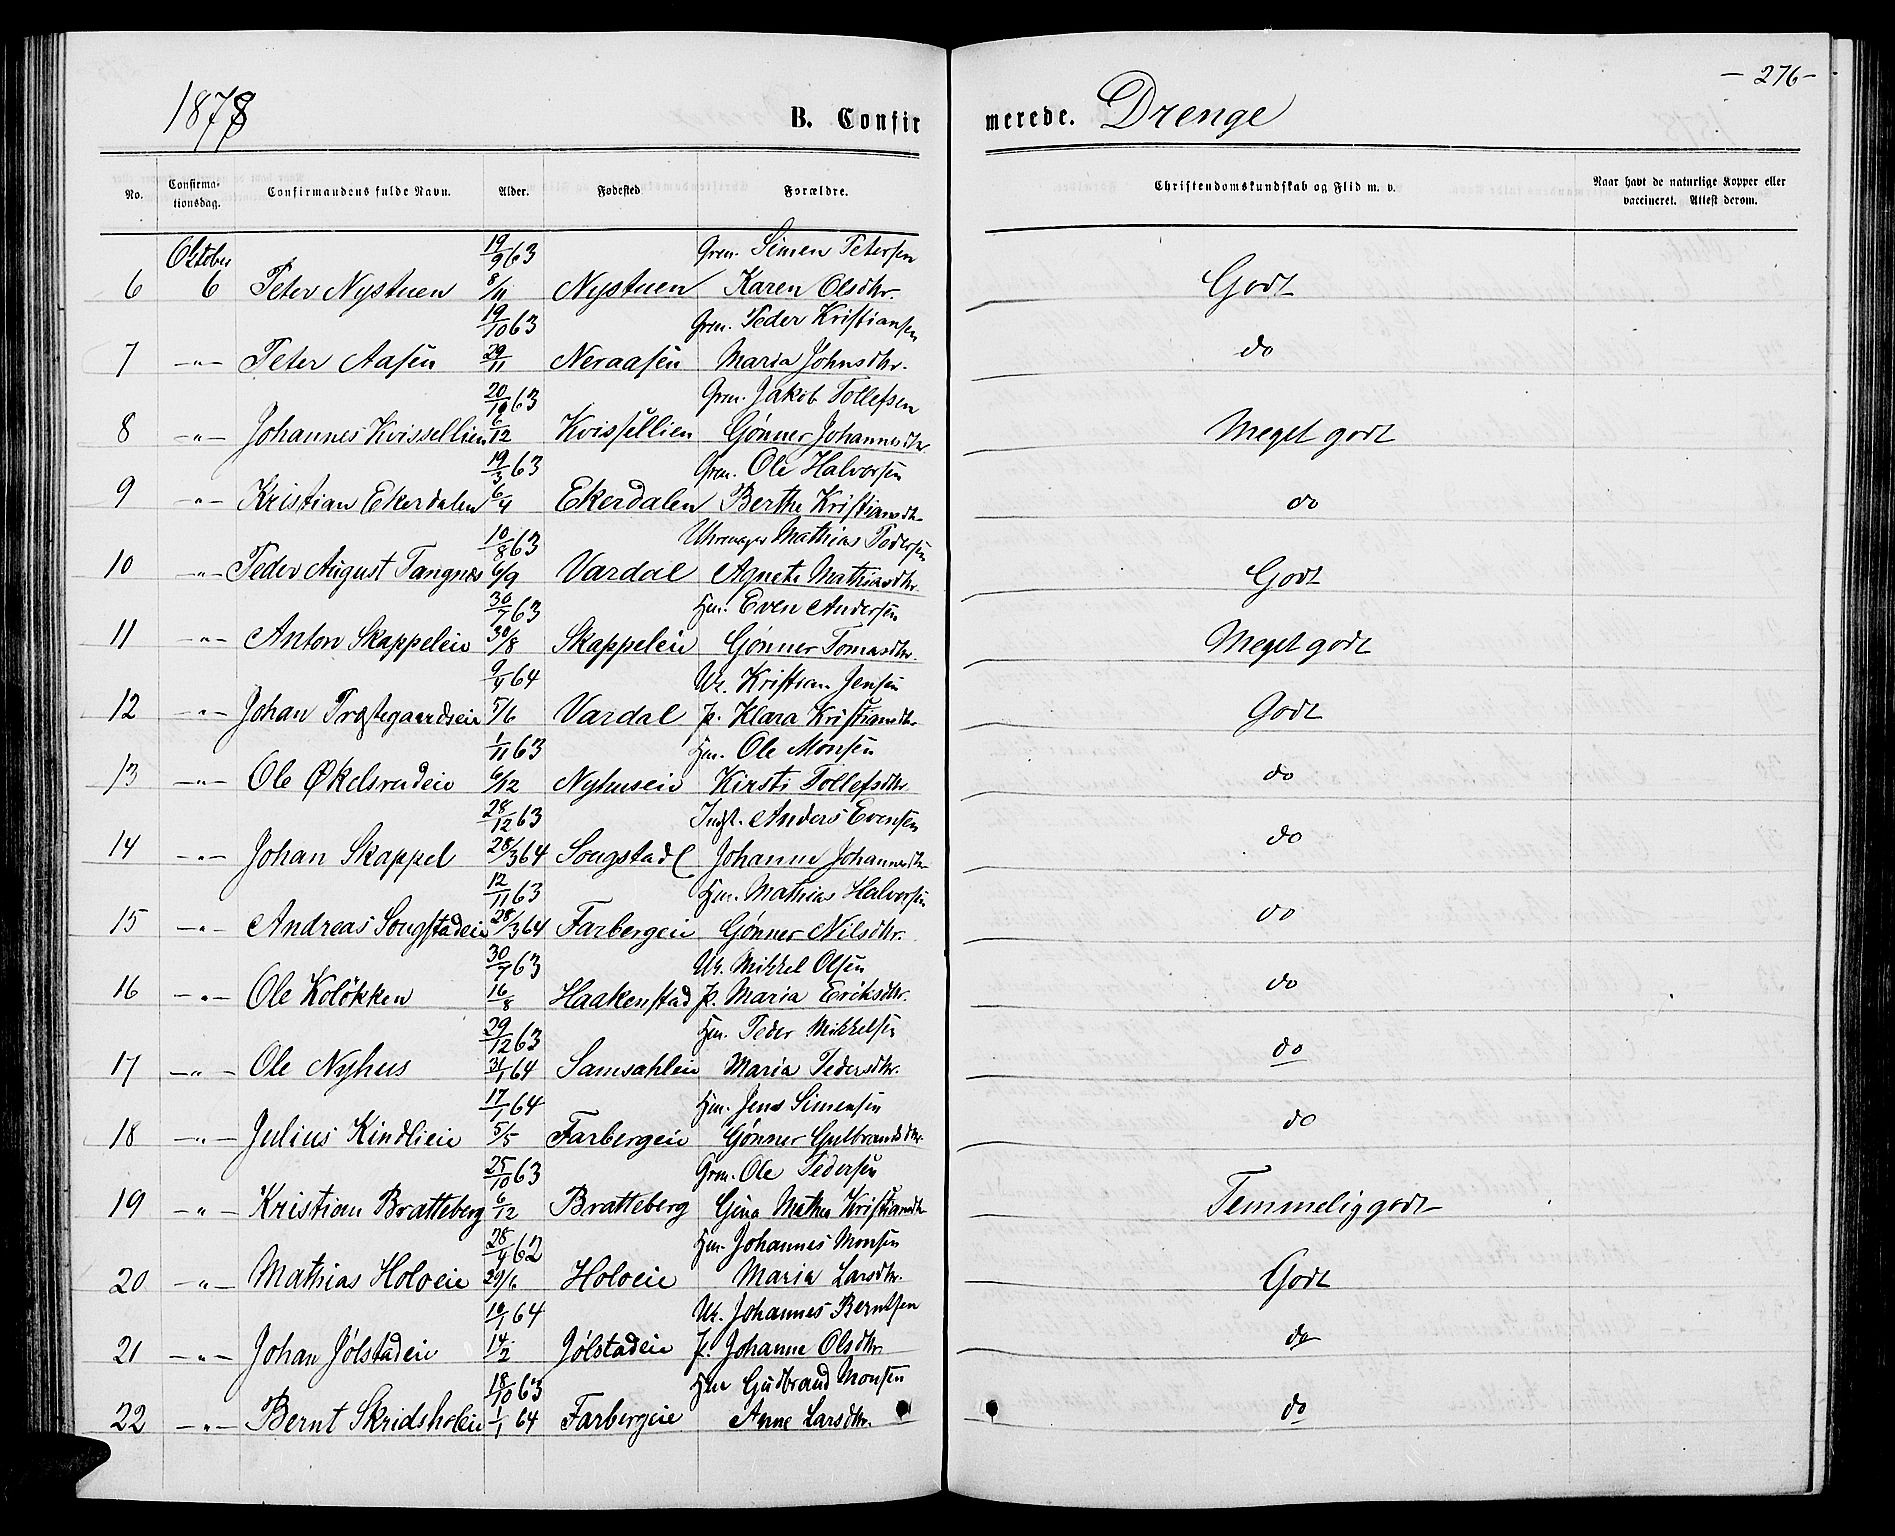 1878
B. Confirmerede. Drenge
- 276 -
No. Confirmationsdag. Confirmandens fulde Navn. Alder. Fødested Forældre. Christendomskundskab og Flid m. v. Naar havt de naturlige Kopper eller vaccineret. Attest derom.
Oktober 19/9 63 Grm. Simen Petersen
6 6 Peter Nystuen 8/11 Nystuen Karen Olsdtr. Godt
19/10 63 Grm. Peder Kristiansen
7 -"- Peter Aasen 29/11 Neraasen Maria Johnsdtr. do
20/10 63 Grm. Jakob Tollefsen
8 -"- Johannes Kvissellien 6/12 Kvissellien Gønner Johannesdtr Meget godt
19/3 63 Grm. Ole Halvorsen
9 -"- Kristian Ekerdalen 6/4 Ekerdalen Berthe Kristiansdtr do
10/8 63 Uhrmager Mathias Pedersen
10 -"- Peder August Tangnæs 6/9 Vardal Agnete Mathiasdtr Godt
30/7 63 Hm. Even Andersen
11 -"- Anton Skappeleie 30/8 Skappeleie Gønner Tomasdtr. Meget godt
9/4 64 Uk. Kristian Jensen
12 -"- Johan Præstegaardseie 5/6 Vardal P. Klara Kristiansdtr Godt
1/11 63 Hm. Ole Monsen
13 -"- Ole Økelsrudeie 6/12 Nyhuseie Kirsti Tollefsdtr do
28/12 63 Indst. Anders Evensen
14 -"- Johan Skappel 28/3 64 Sougstad Johanne Johannesdtr do
12/11 63 Hm. Mathias Halvorsen
15 -"- Andreas Sougstadeie 28/3 64 Farbergeie Gønner Nilsdtr. do
30/7 63 Uk. Mikkel Olsen
16 -"- Ole Koløkken 16/8 Haakenstad P. Maria Eriksdtr. do
29/12 63 Hm. Peder Mikkelsen
17 -"- Ole Nyhus 31/1 64 Samsahleie Maria Pedersdtr. do
17/1 64 Hm. Jens Simensen
18 -"- Julius Kindlieie 5/5 Farbergeie Gønner Gulbrandsdtr. do
25/10 63 Grm. Ole Pedersen
19 -"- Kristian Bratteberg 6/12 Bratteberg Gina Mathea Kristiansdtr Temmelig godt
28/4 62 Hm. Johannes Monsen
20 -"- Mathias Holoeie 29/6 Holoeie Maria Larsdtr. Godt
19/1 64 Uk. Johannes Berntsen
21 -"- Johan Jølstadeie 14/2 Jølstadeie P. Johanne Olsdtr. do
18/10 63 Hm Gudbrand Monsen
22 -"- Bernt Skridsholeie 1/1 64 Farbergeie Anne Larsdtr. do